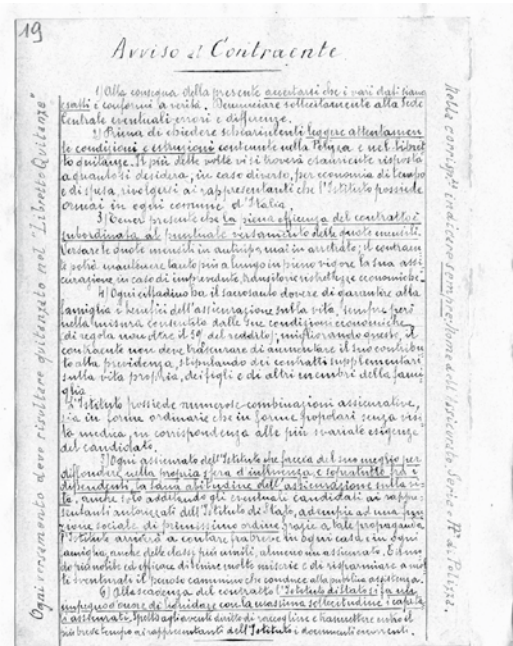 19
Avviso al Contraente
1) Alla consegna della presente accertarsi che i vari dati siano
esatti e conformi a verità. Denunciare sollecitamente alla Sede
Centrale eventuali errori e differenze.
2) Prima di chiedere schiarimenti leggere attentamen-
te condizioni e istruzioni contenute nella Polizza e nel libret-
to quitanze. Il più delle volte vi si troverà esauriente risposta
a quanto si desidera, in caso diverso, per economia di tempo
e di spesa, rivolgersi ai rappresentanti che l'Istituto possiede
ormai in ogni comune d'Italia.
3) Tener presente che la piena efficienza del contratto è
subordinata al puntuale versamento delle quote mensili.
Versare le quote mensili in anticipo, mai in arretrato; il contraen-
te potrà mantenere tanto più a lungo in pieno vigore la sua assi-
curazione, in caso di impreveduta, transitorie ristrettezze economiche.
4) Ogni cittadino ha il sacrosanto dovere di garantire alla
famiglia i benefici dell'assicurazione sulla vita, sempre però
nella misura consentita dalle sue condizioni economiche
(di regola non oltre il del reddito); migliorando queste, il
contraente non deve trascurare di aumentare il suo contribu-
to alla previdenza, stipulando dei contratti supplementari
sulla vita propria, dei figli e di altri membri della fami-
glia.
L'Istituto possiede numerose combinazioni assicurative,
sia in forme ordinarie che in forme popolari senza visi-
ta medica, in corrispondenza alle più svariate esigenze
del candidato.
5) Ogni assicurato dell'Istituto che faccia del suo meglio per
diffondere nella propria sfera d'influenza e sopratutto fra i
dipendenti, la sana abitudine dell'assicurazione sulla vi-
ta, anche solo additando gli eventuali candidati ai rappre-
sentanti autorizzati dell'Istituto di Stato, adempie ad una fun-
zione sociale di primissimo ordine; grazie a tale propaganda
l'Istituto arriverà a contare fra breve in ogni casa, in ogni
famiglia, anche delle classi più umili, almeno un assicurato. È il mo-
do più nobile ed efficace di lenire molte miserie e di risparmiare a mol-
ti sventurati il penoso cammino che conduce alla pubblica assistenza.
6) Alla scadenza del contratto l'Istituto di Stato si fa un
impegno d'onore di liquidare con la massima sollecitudine i capita-
li assicurati. Spetta agli aventi diritto di raccogliere e trasmettere entro il
più breve tempo ai rappresentanti dell'Istituto i documenti occorrenti.
Ogni versamento deve risultare quitanzato nel "Libretto Quitanze"
Nella corrisp. indicare sempre: Nome dell'Assicurato N° di Polizza.